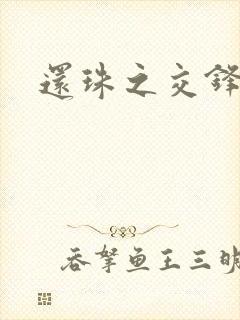 還珠之交鋒
吞拏魚王三明